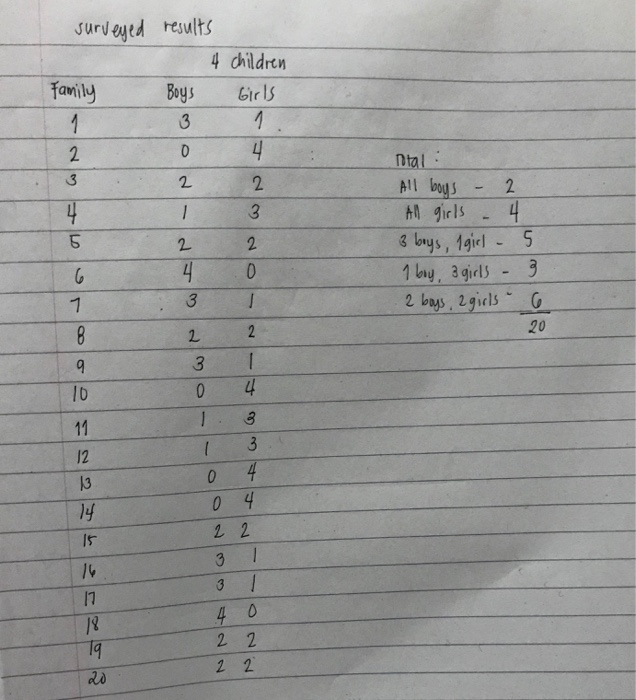 surveyed results
4 children
Family Boys Girls
1 3 1
2 0 4
3 2 2
4 1 3
5 2 2
6 4 0
7 3 1
8 2 2
9 3 1
10 0 4
11 1 3
12 1 3
13 0 4
14 0 4
15 2 2
16 3 1
17 3 1
18 4 0
19 2 2
20 2 2
Total :
All boys - 2
All girls - 4
3 boys, 1 girl - 5
1 boy, 3 girls - 3
2 boys, 2 girls - 6
20